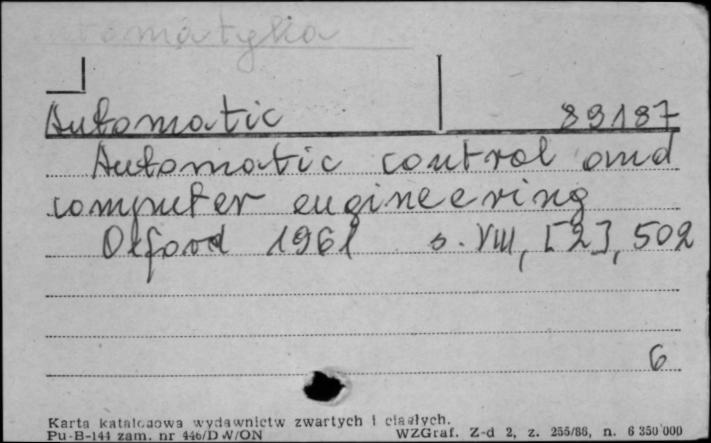 Automatyka
Automatic 89187
Automatic control and
computer engineering
Oxford 1961 s. VIII, [2], 502
6
Karta katalogowa wydawnictw zwartych i ciągłych.
Pu-B-144 zam. nr 446/DW/ON WZGraf. Z-d 2, z. 255/86, n. 6 350 000